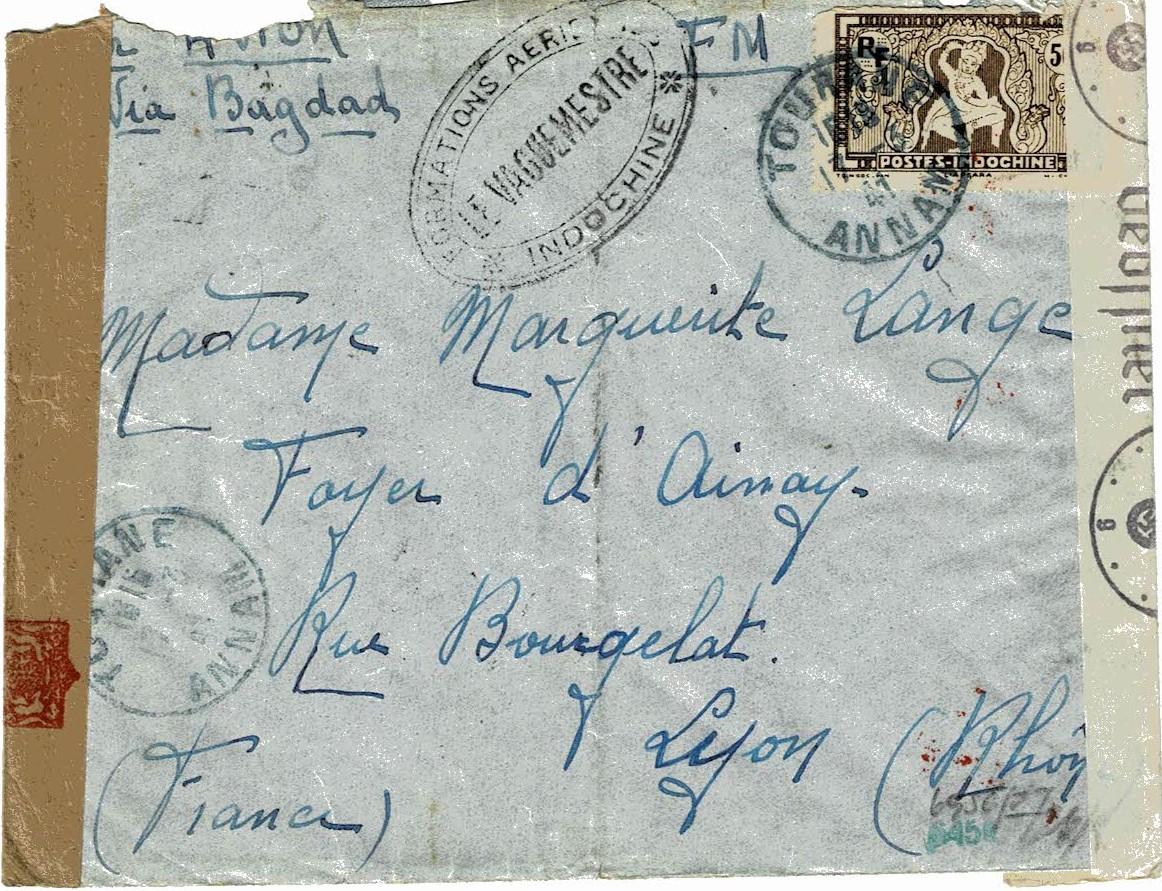 Avion
Via Bagdad
FM
FORMATIONS AERIE
LE VAGUEMESTRE
INDOCHINE
RF
5
POSTES-INDOCHINE
TOURAN
41
ANNAM
Geöffnet
Madame Marguerite Lange
Foyer d'Ainay
Rue Bourgelat.
Lyon (Rhôn
(France)
TOURANE
16
ANNAM
g
g